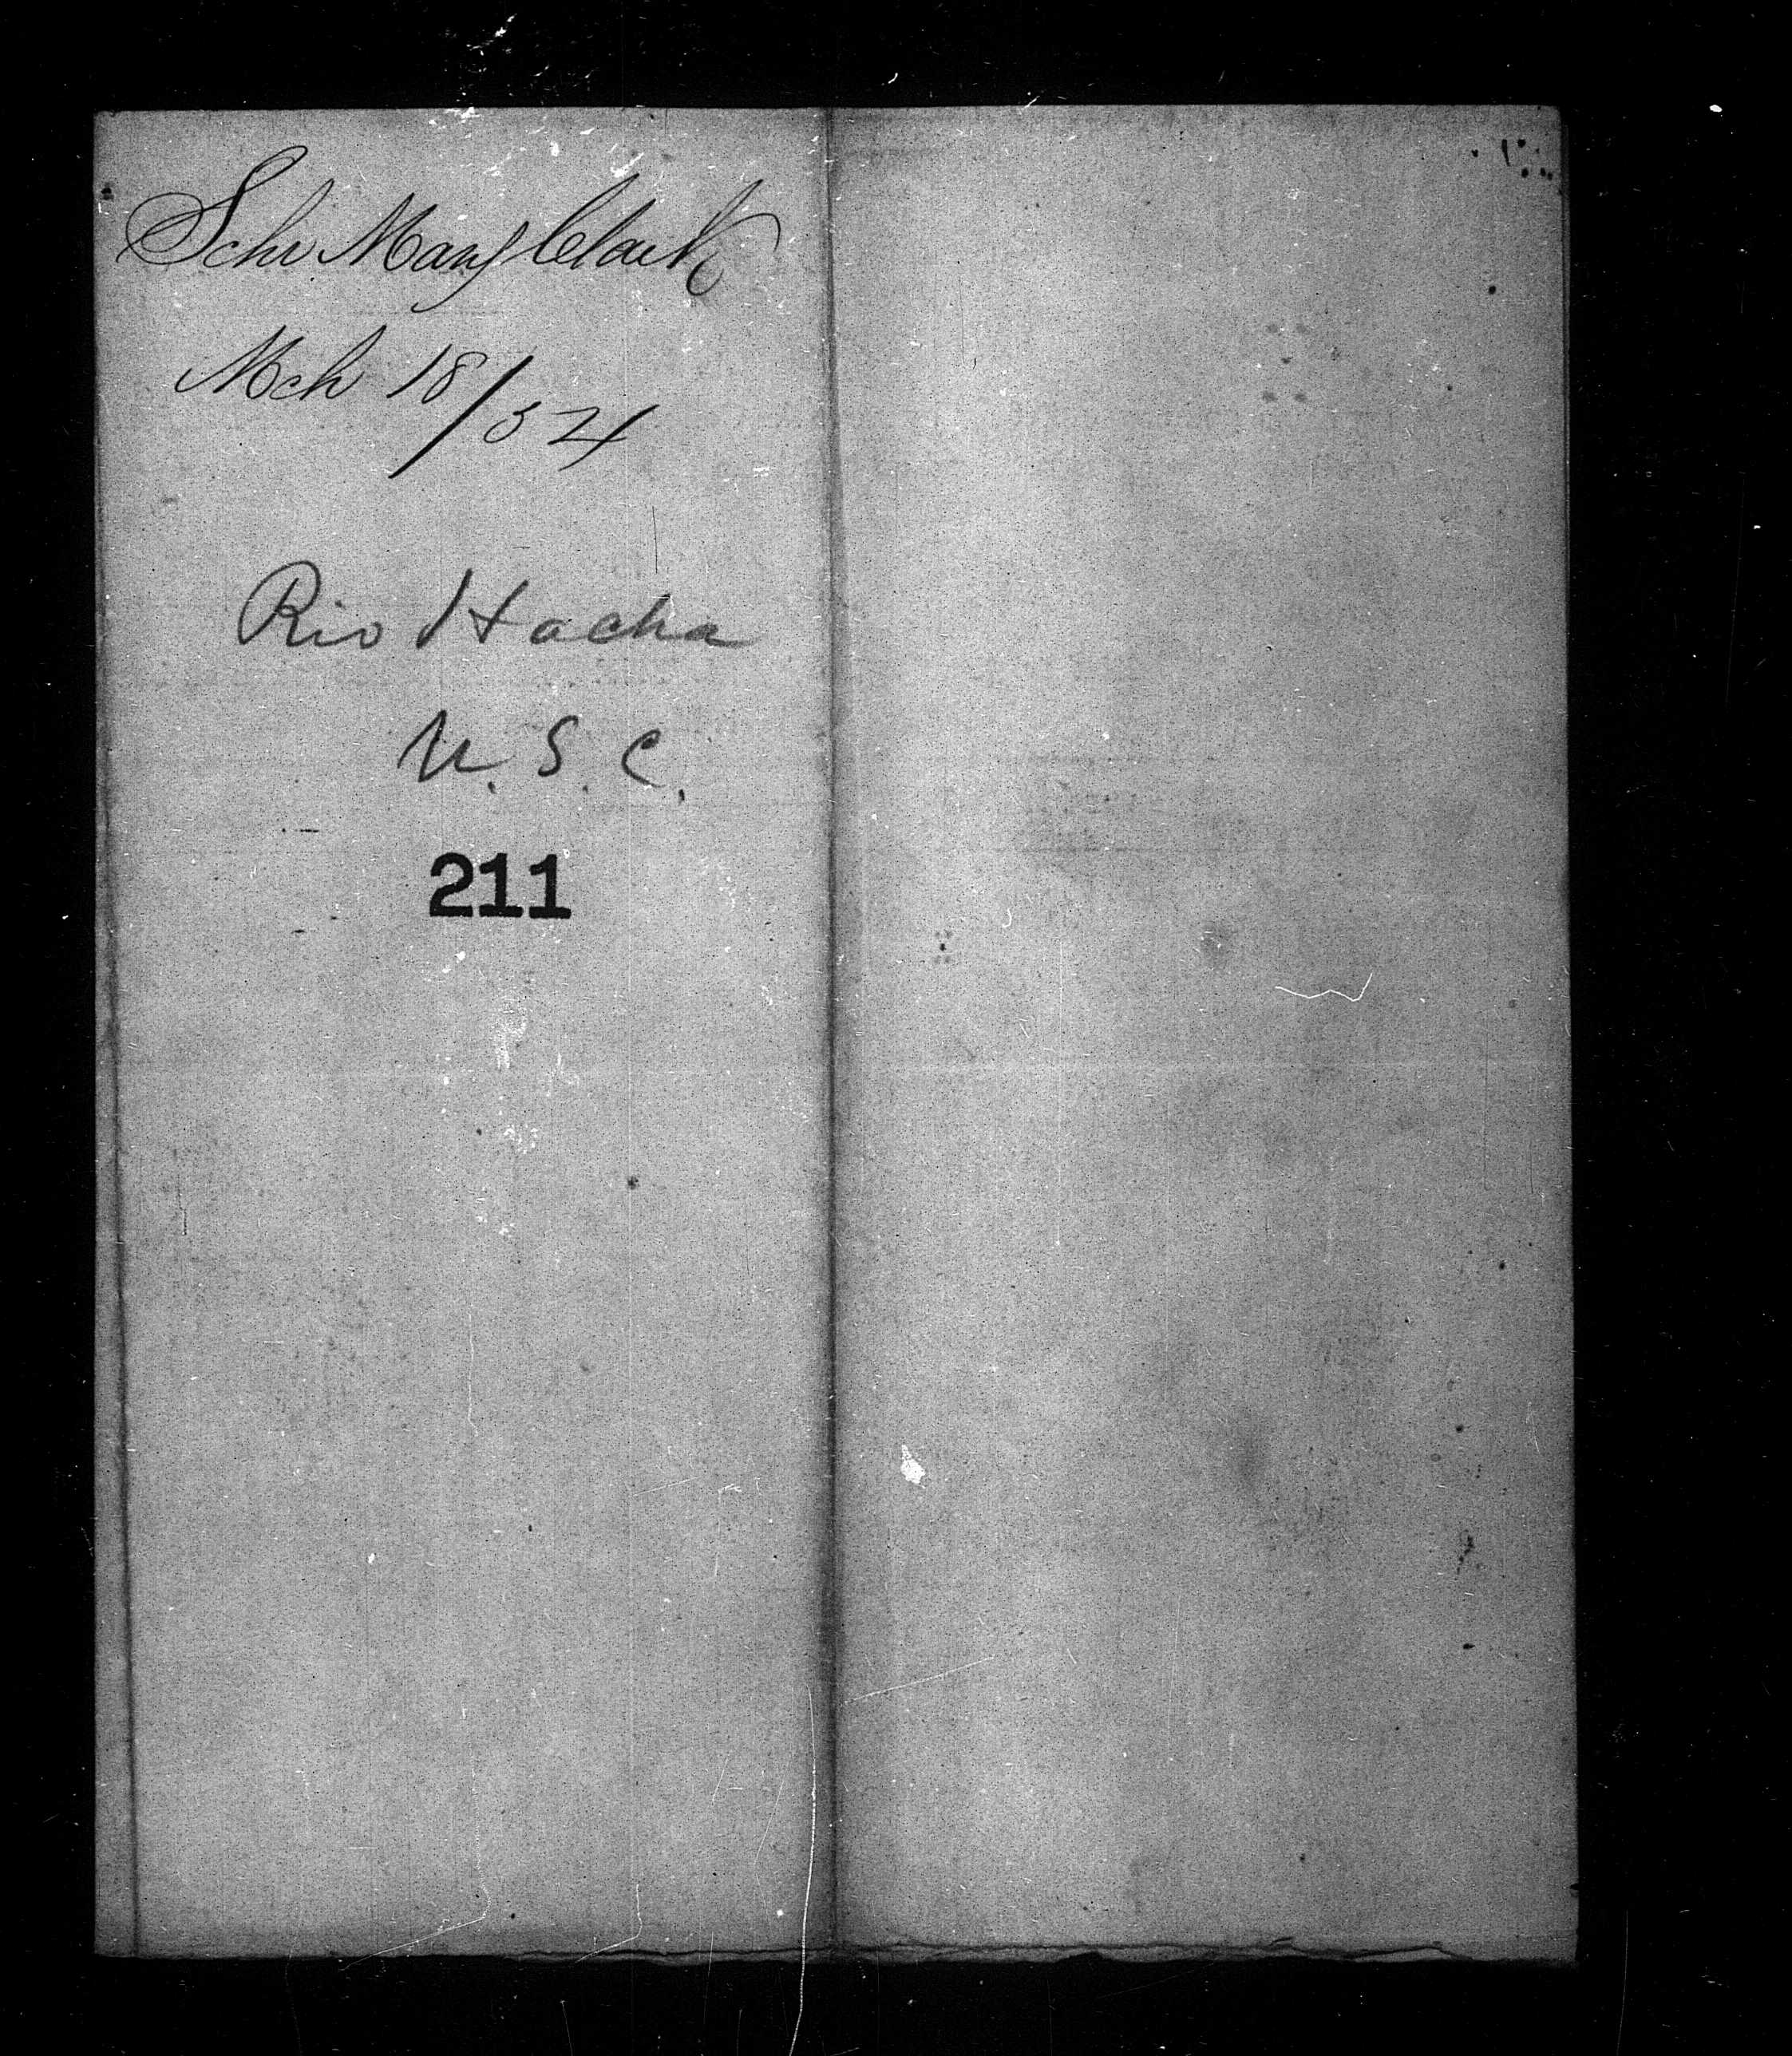 Schr Mary Clark
Mch 18/54
Rio Hacha
U.S.C.
211